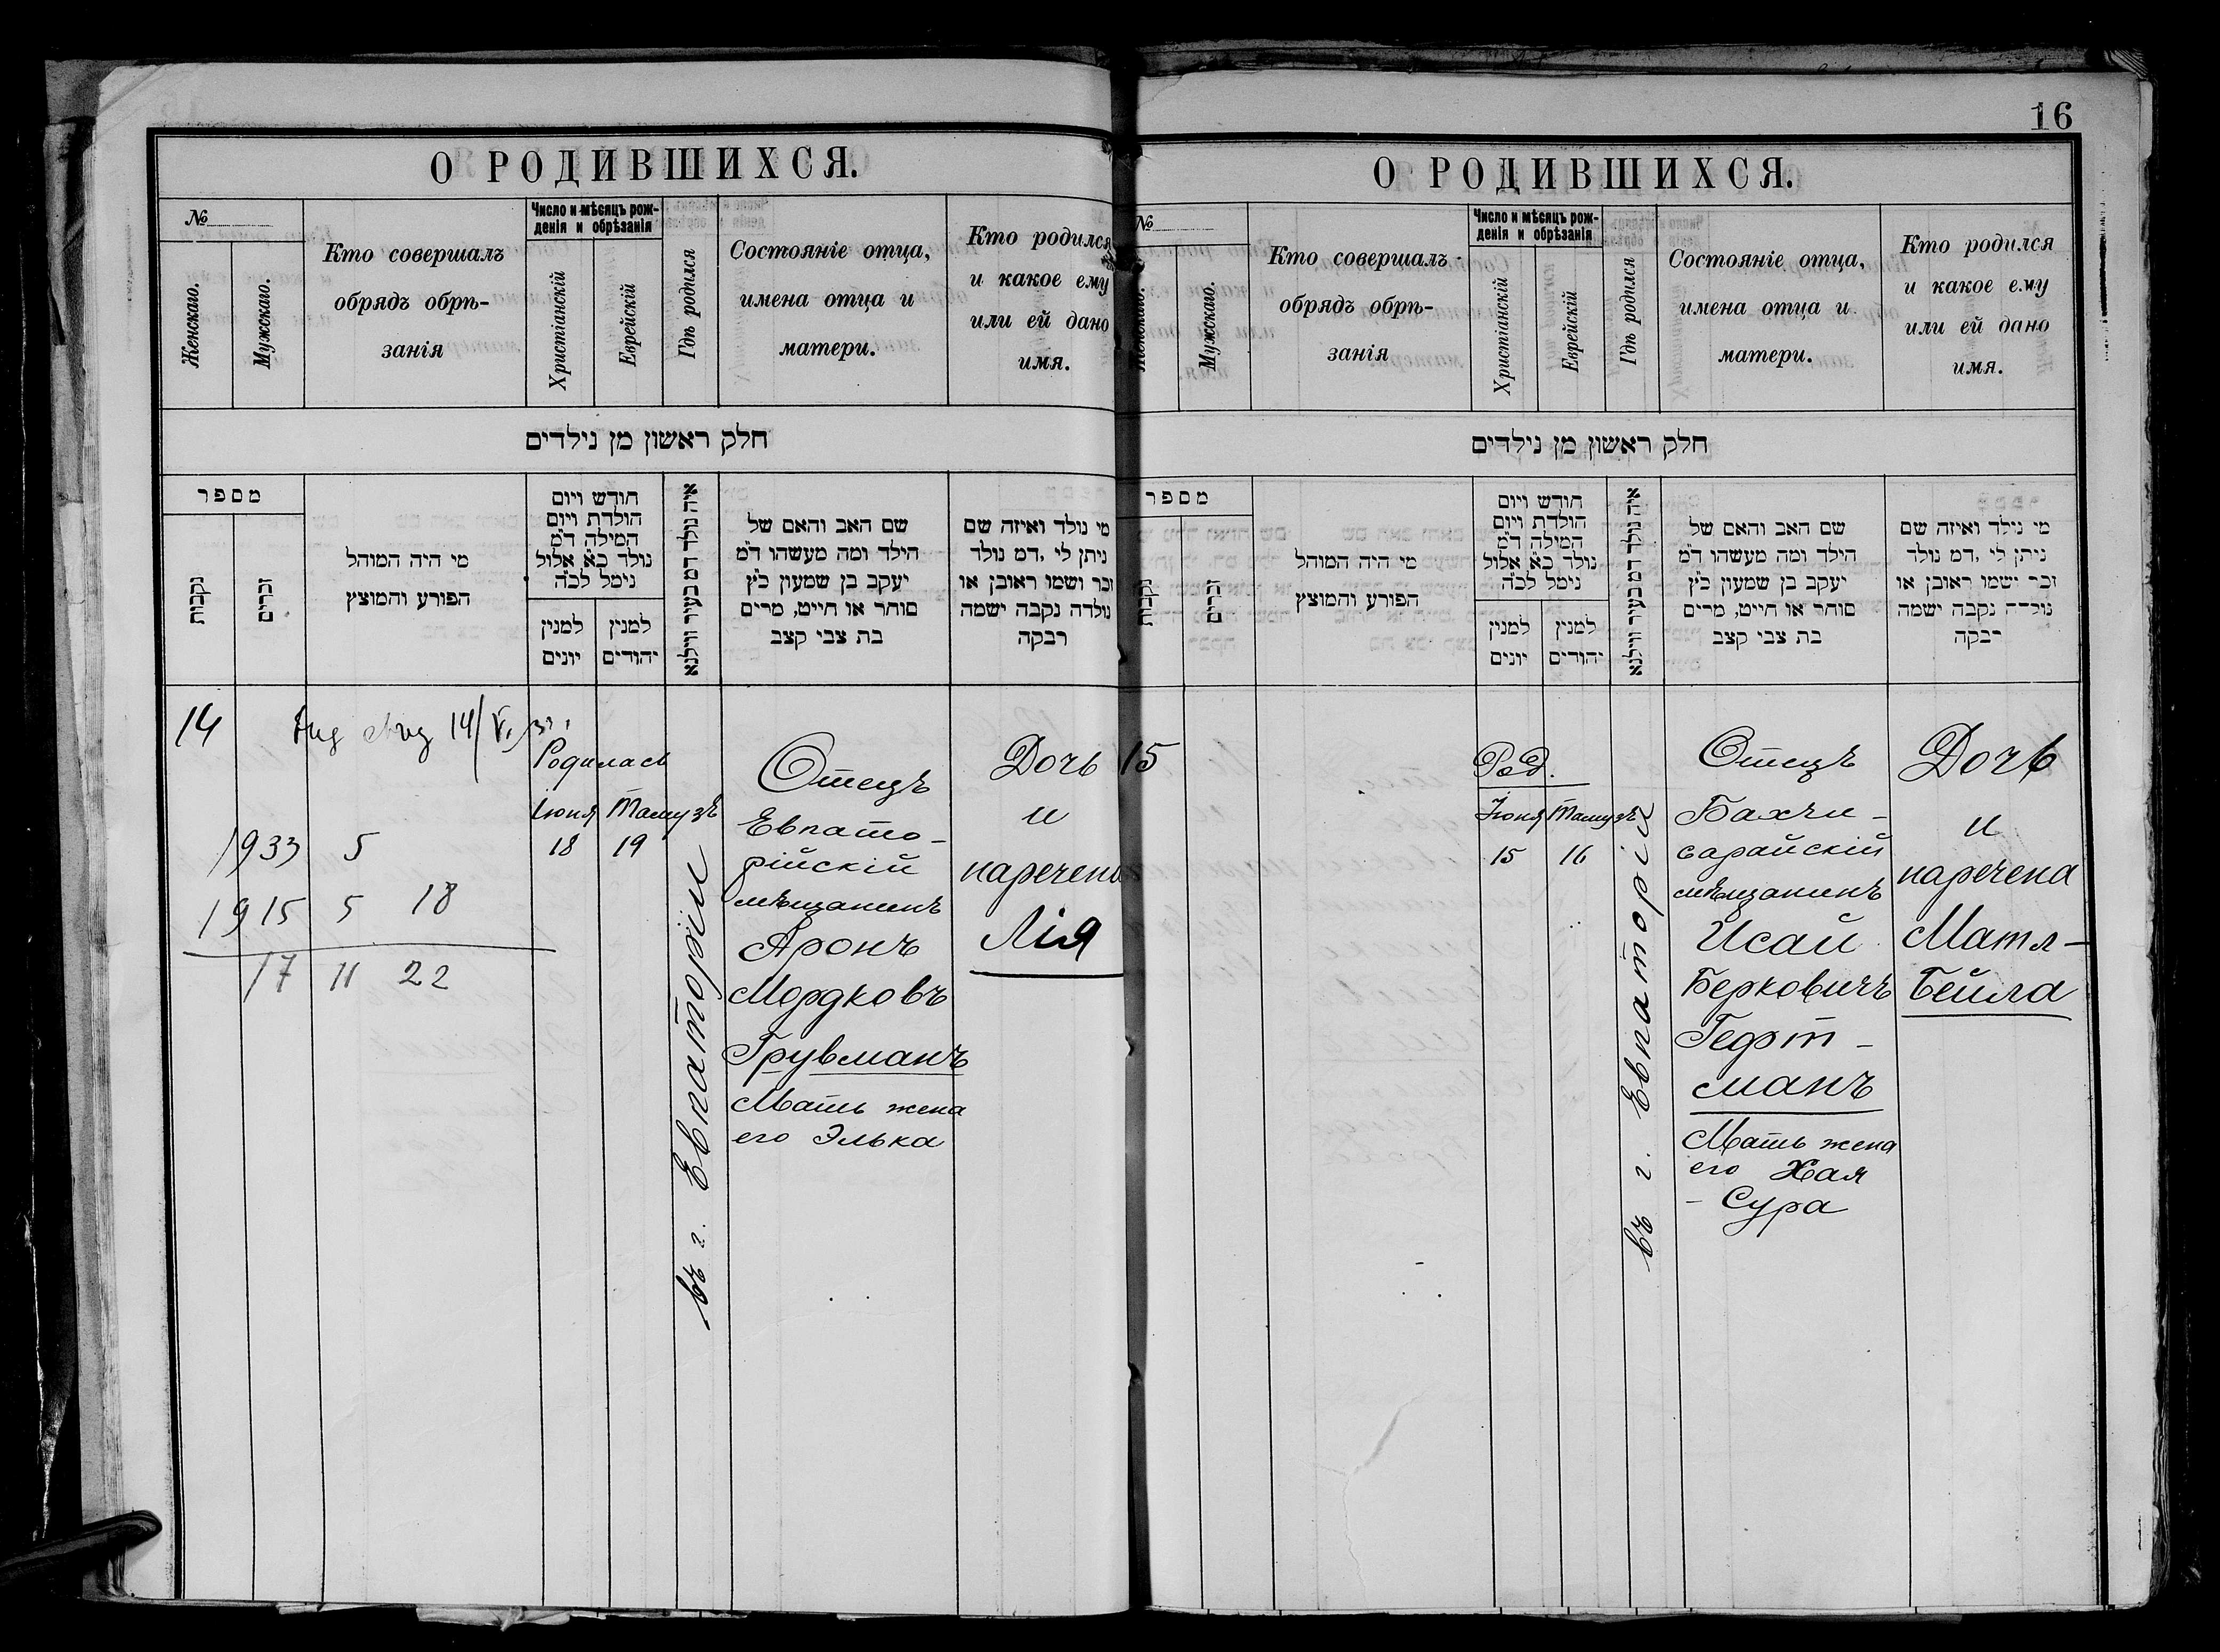 О РОДИВШИХСЯ.
№
Женскаго.
Мужскаго.
Кто совершалъ
обрядъ обрѣ-
занія
Число и мѣсяцъ рож-
денія и обрѣзанія
Христіанскій
Еврейскій
Гдѣ родился
Состояніе отца,
имена отца и
матери.
Кто родился
и какое ему
или ей дано
имя.
חלק ראשון מן נילדים
מספר
נקבות
זכרים
מי היה המוהל
הפורע והמוצץ
חודש ויום
הולדת ויום
המילה ד״מ
נולד כ״א אלול
נימל לכ״ה
למנין
יונים
למנין
יהודים
איה נולד דמ בעיר ווילנא
שם האב והאם של
הילד ומה מעשהו ד״מ
יעקב בן שמעון כ״ץ
סוחר או חייט, מרים
בת צבי קצב
מי נולד ואיזה שם
ניתן לי ,דמ נולד
זכר ושמו ראובן או
נולדה נקבה ישמה
רבקה
14
14/V
1933 5
1915 5 18
17 11 22
Родилась
Іюня Тамузъ
18 19
въ г. Евпаторіи
Отецъ
Евпато-
рійскій
мѣщанинъ
Аронъ
Мордковъ
Грувманъ
Мать жена
его Элька
Дочь
и
наречена
Лія
16
О РОДИВШИХСЯ.
№
Женскаго.
Мужскаго.
Кто совершалъ
обрядъ обрѣ-
занія
Число и мѣсяцъ рож-
денія и обрѣзанія
Христіанскій
Еврейскій
Гдѣ родился
Состояніе отца,
имена отца и
матери.
Кто родился
и какое ему
или ей дано
имя.
חלק ראשון מן נילדים
מספר
נקבות
זכרים
מי היה המוהל
הפורע והמוצץ
חודש ויום
הולדת ויום
המילה ד״מ
נולד כ״א אלול
נימל לכ״ה
למנין
יונים
למנין
יהודים
איה נולד דמ בעיר ווילנא
שם האב והאם של
הילד ומה מעשהו ד״מ
יעקב בן שמעון כ״ץ
סוחר או חייט, מרים
בת צבי קצב
מי נילד ואיזה שם
ניתן לי ,דמ נולד
זכר ישמו ראובן או
נולדה נקבה ישמה
רבקה
15
Род.
Іюня Тамузъ
15 16
въ г. Евпаторіи
Отецъ
Бахчи-
сарайскій
мѣщанинъ
Исай
Берковичъ
Гефт-
манъ
Мать жена
его Хая
- Сура
Дочь
и
наречена
Матл-
Бейла